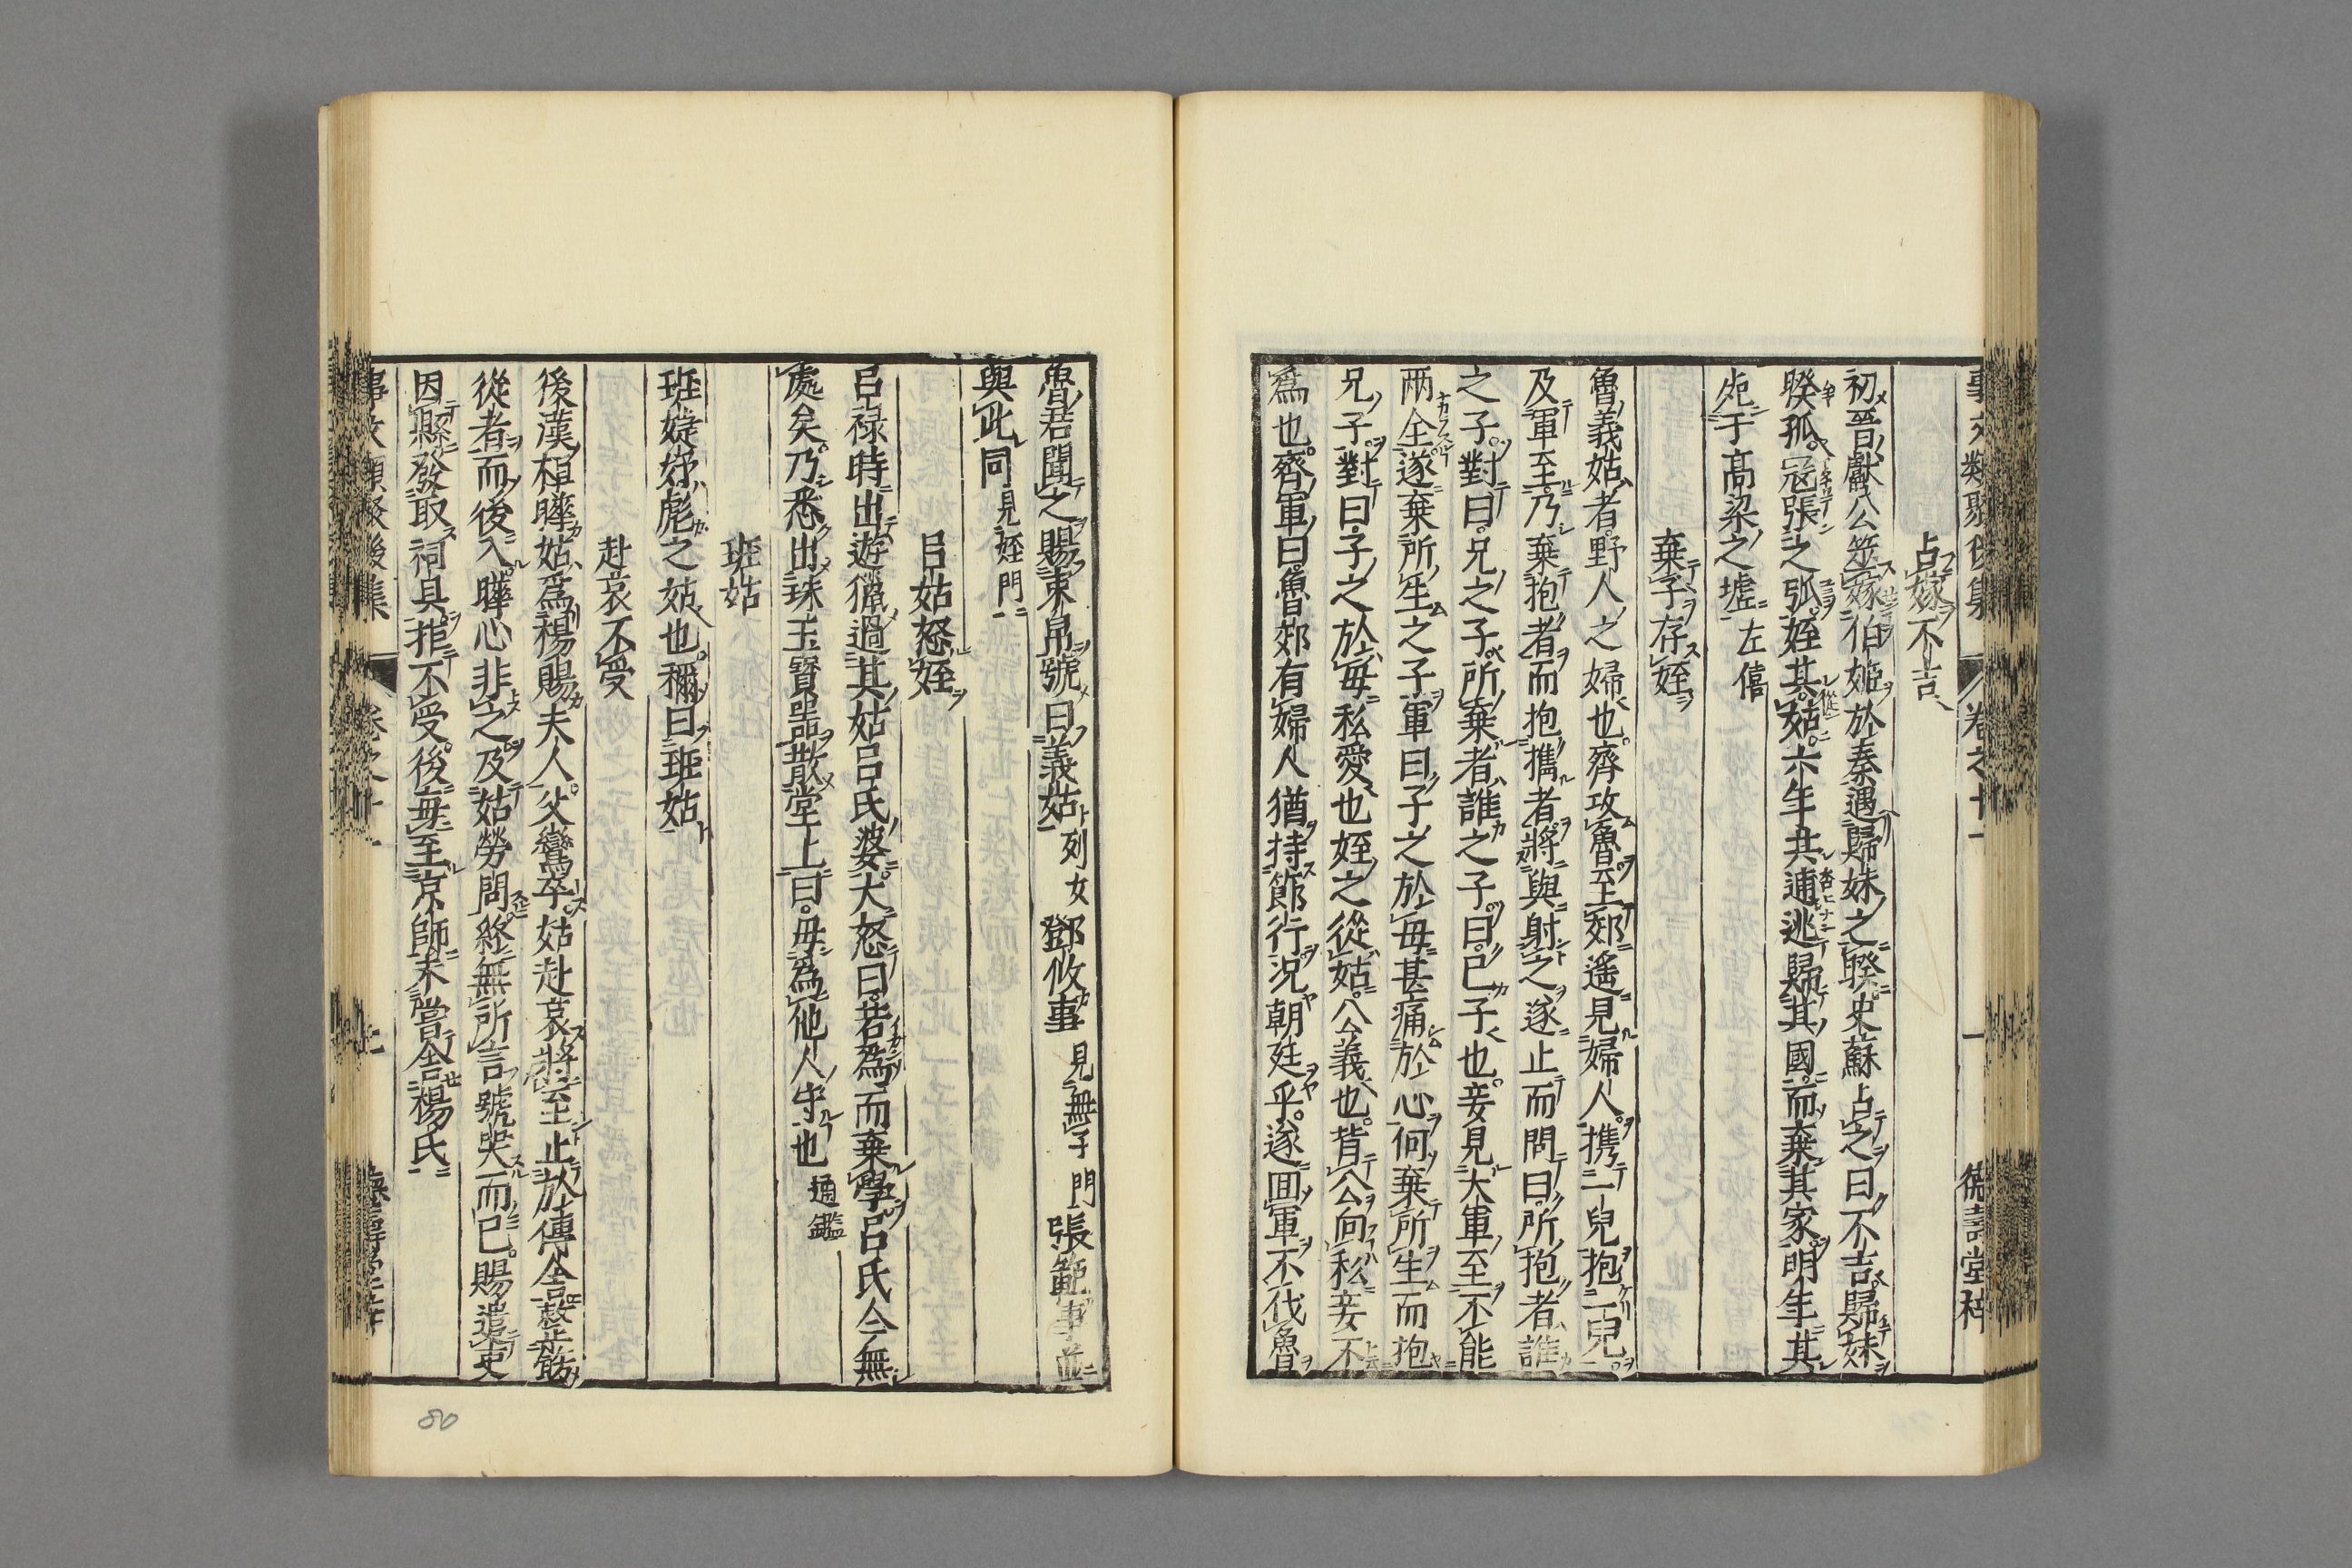 占嫁不吉
初晉獻公筮嫁伯姬於秦遇歸妹之睽史蘇占之曰不吉歸妹
睽孤冦張之弧姪其從姑六年其逋逃歸其國而棄其家明年其
死于高梁之墟左僖
棄子存姪
魯義姑者野人之婦也齊攻魯至郊遙見婦人携一兒抱一兒
及軍至乃棄抱者而抱攜者將與射之遂止而問曰所抱者誰
之子對曰兄之子所棄者誰之子曰己子也妾見大軍至不能
兩全遂棄所生之子軍曰子之於母甚痛於心何棄所生而抱
兄子對曰子之於母私愛也姪之從姑公義也背公向私妾不
爲也齊軍曰魯郊有婦人猶持節行况朝廷乎遂囬軍不伐魯
魯君聞之賜束帛號曰義姑列女鄧攸事見無子門張範事並
與此同見姪門
吕姑怒姪
吕祿時出遊獵過其姑吕氏婆大怒曰若爲而棄學吕氏今無
處矣乃悉出珠玉寶噐散堂上曰毋爲他人守也通鑑
班姑
班婕妤彪之姑也禰曰班姑
赴哀不受
後漢桓曄姑爲楊賜夫人父鸞卒姑赴哀將至止於傳舍整飾
從者而後入曄心非之及姑勞問終無所言號哭而已賜遣吏
因縣發取祠具拒不受後每至京師未嘗舍楊氏
80